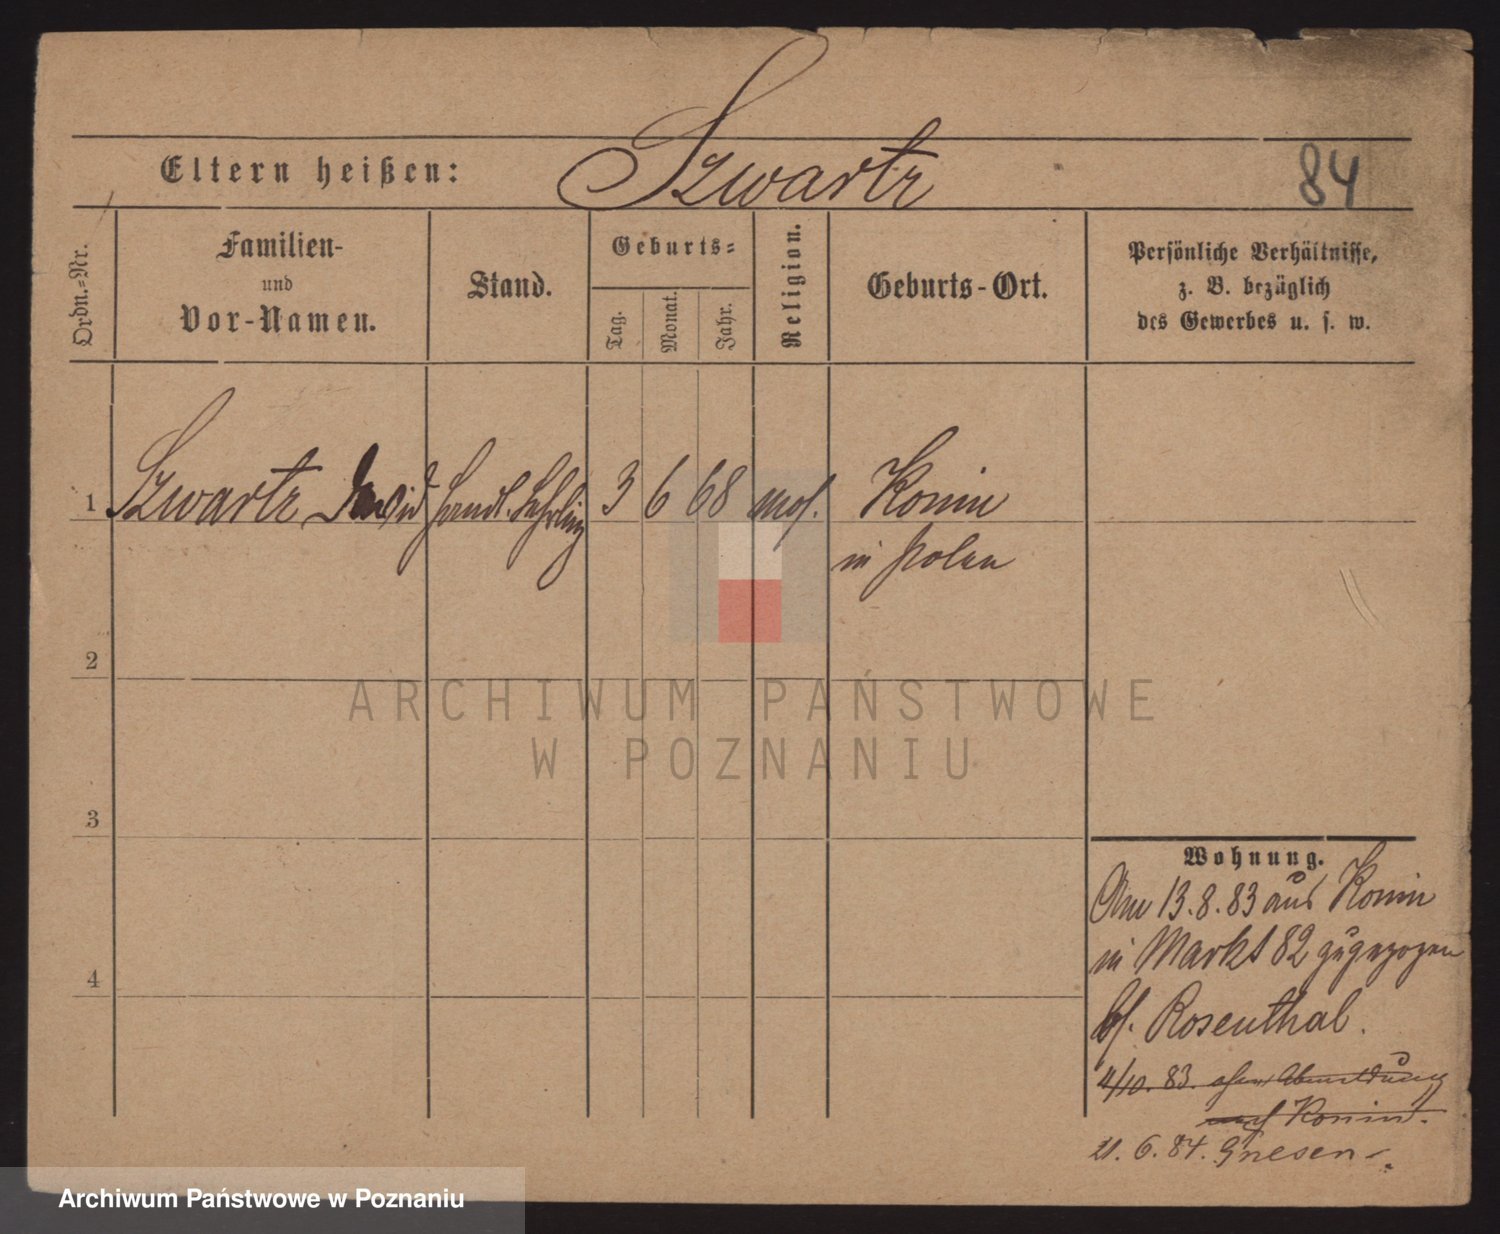 Eltern heißen: Szwartz 84
Ordn.-Nr.
Familien-
und
Vor-Namen.
Stand.
Geburts-
Tag.
Monat.
Jahr.
Religion.
Geburts-Ort.
Persönliche Verhältnisse,
z. B. bezüglich
des Gewerbes u. s. w.
1 Szwartz David Handl. Lehrling 3 6 68 mos. Konin
in Polen
2
3
4
Wohnung.
Am 13.8.83 aus Konin
in Markt 82 zugezogen
bh. Rosenthal.
4/10. 83. ohne Abmeldung
nach Konin.
21. 6. 84. Gnesen
ARCHIWUM PAŃSTWOWE
W POZNANIU
Archiwum Państwowe w Poznaniu